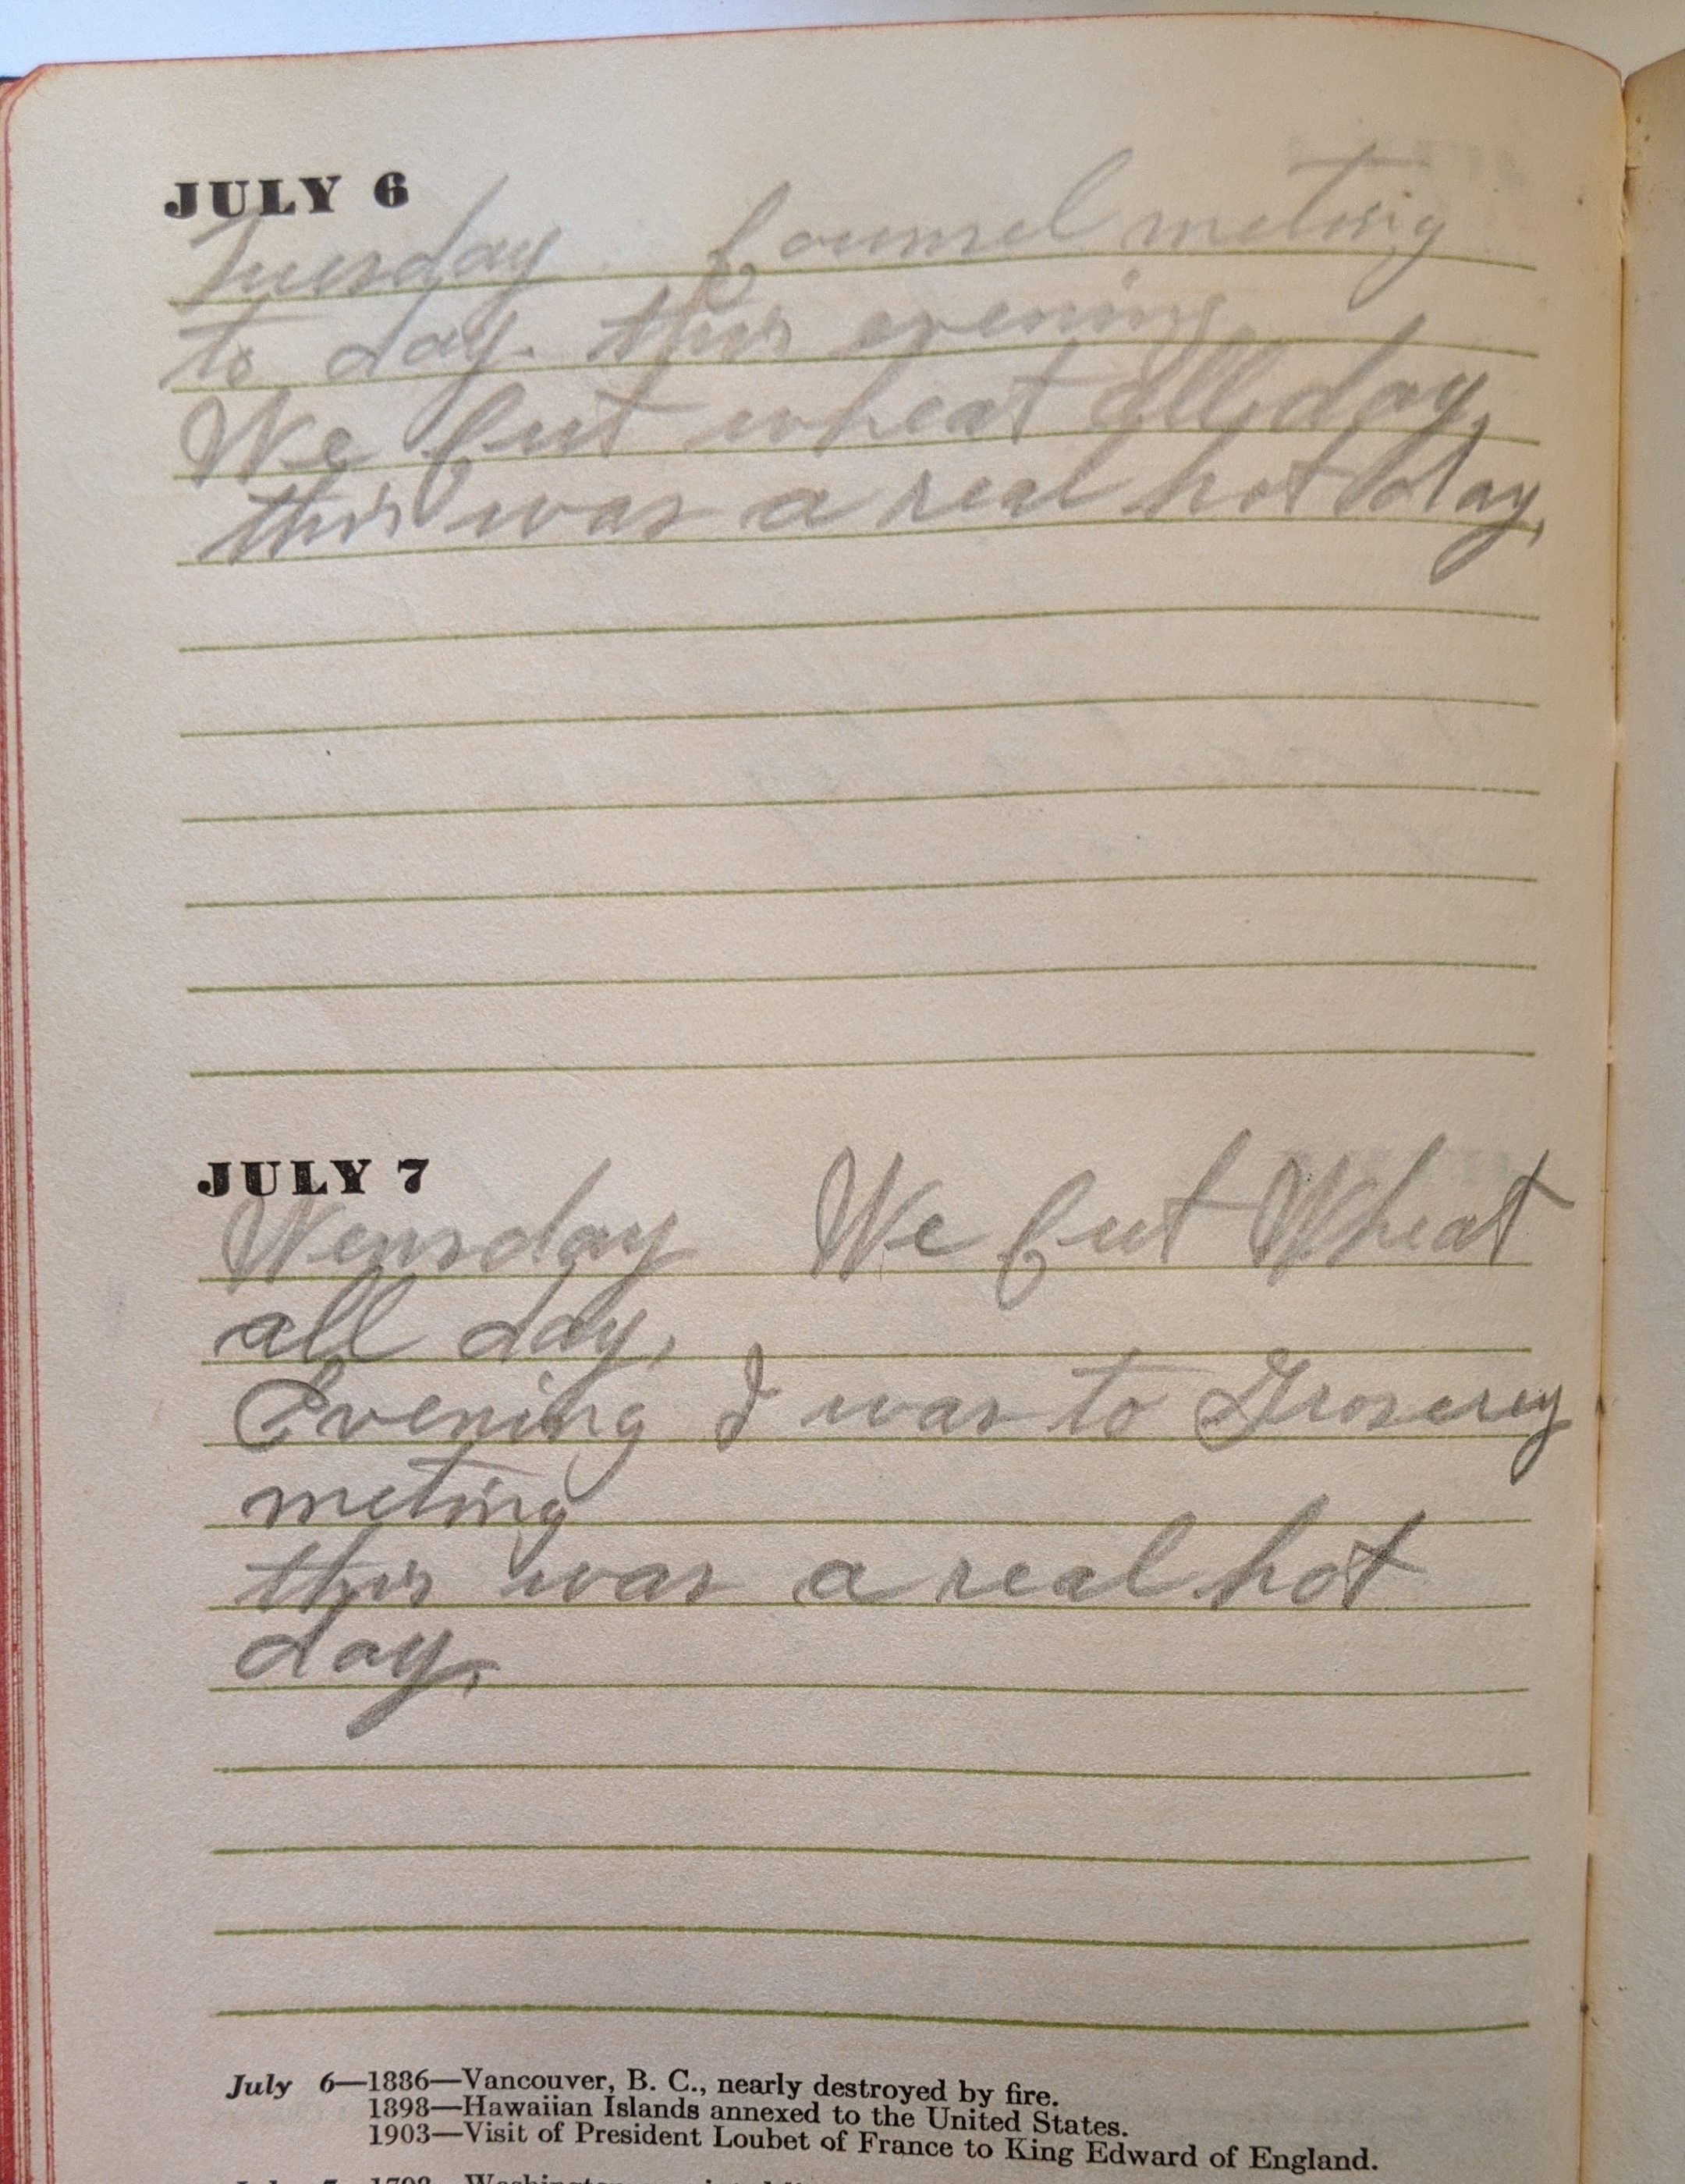 JULY 6
Tuesday Counsel meting
to day. this evening
We Cut wheat all day,
this was a real hot day,
JULY 7
Wensday We Cut Wheat
all day,
Evening I was to Groserey
meting
this was a real hot
day,
July 6—1886—Vancouver, B. C., nearly destroyed by fire.
1898—Hawaiian Islands annexed to the United States.
1903—Visit of President Loubet of France to King Edward of England.